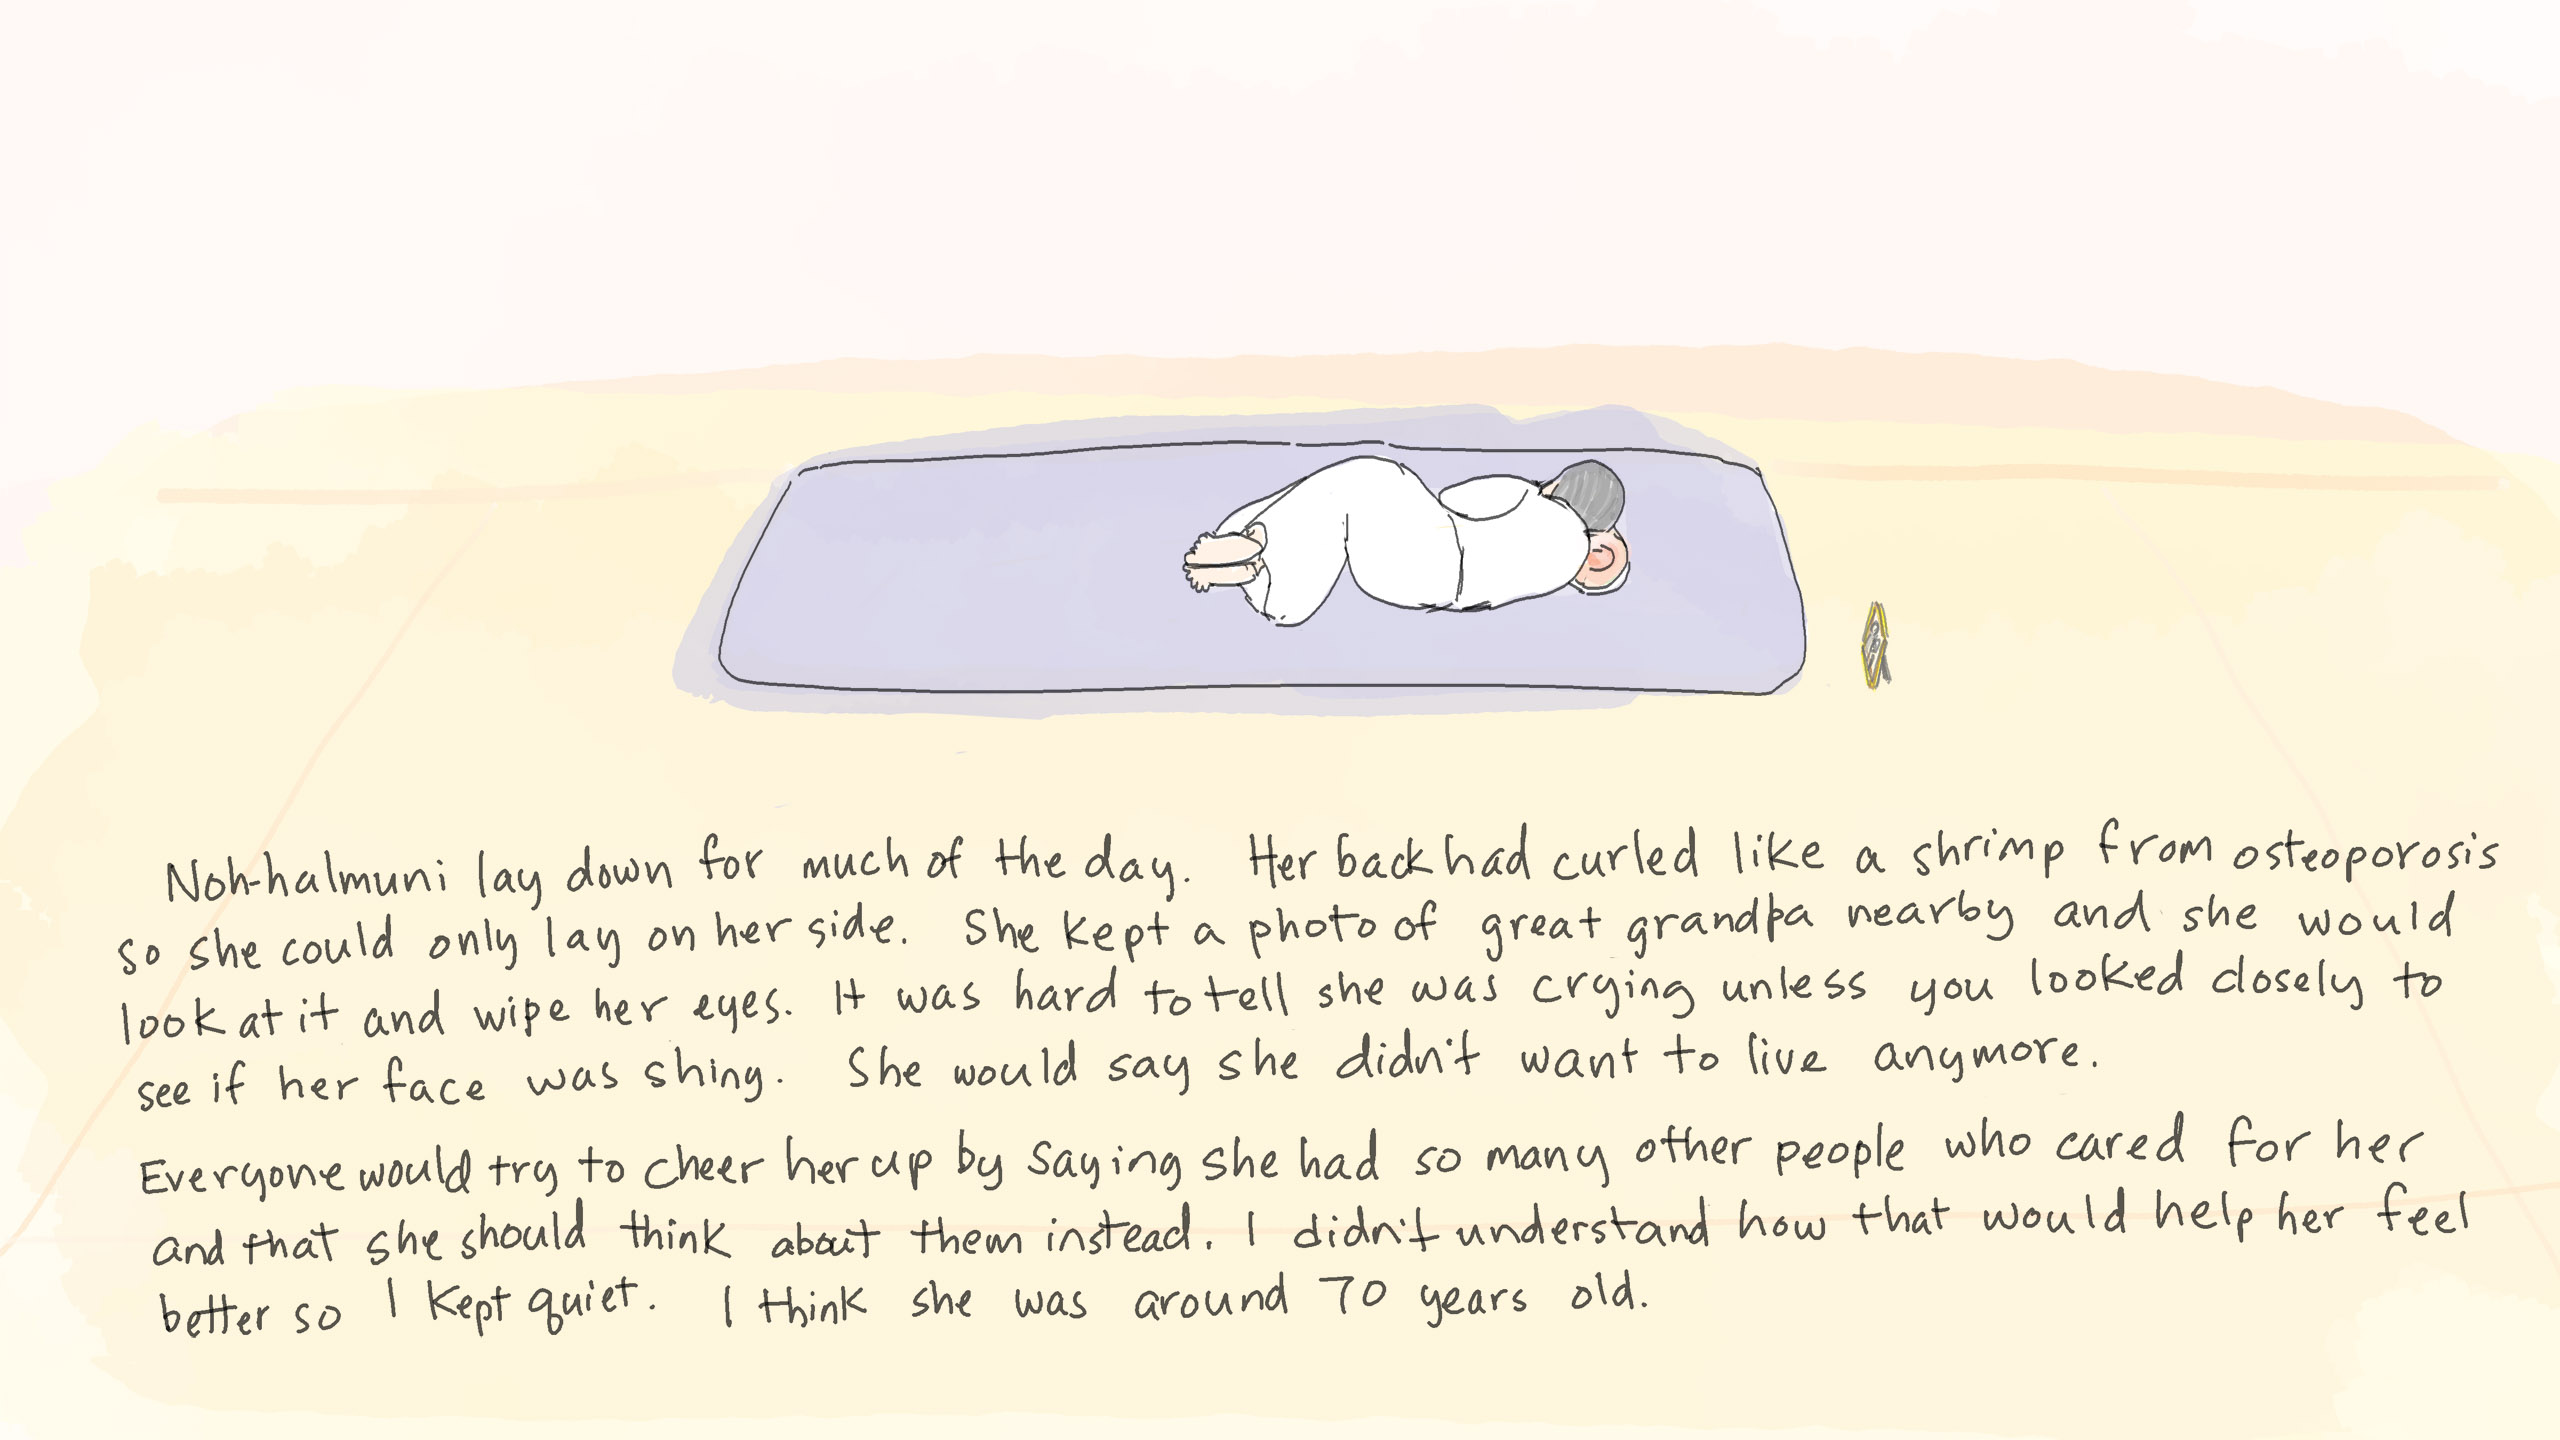 Noh-halmuni lay down for much of the day. Her back had curled like a shrimp from osteoporosis
so she could only lay on her side. She kept a photo of great grandpa nearby and she would
look at it and wipe her eyes. It was hard to tell she was crying unless you looked closely to
see if her face was shiny. She would say she didn't want to live anymore.
Everyone would try to cheer her up by saying she had so many other people who cared for her
and that she should think about them instead. I didn't understand how that would help her feel
better so I kept quiet. I think she was around 70 years old.